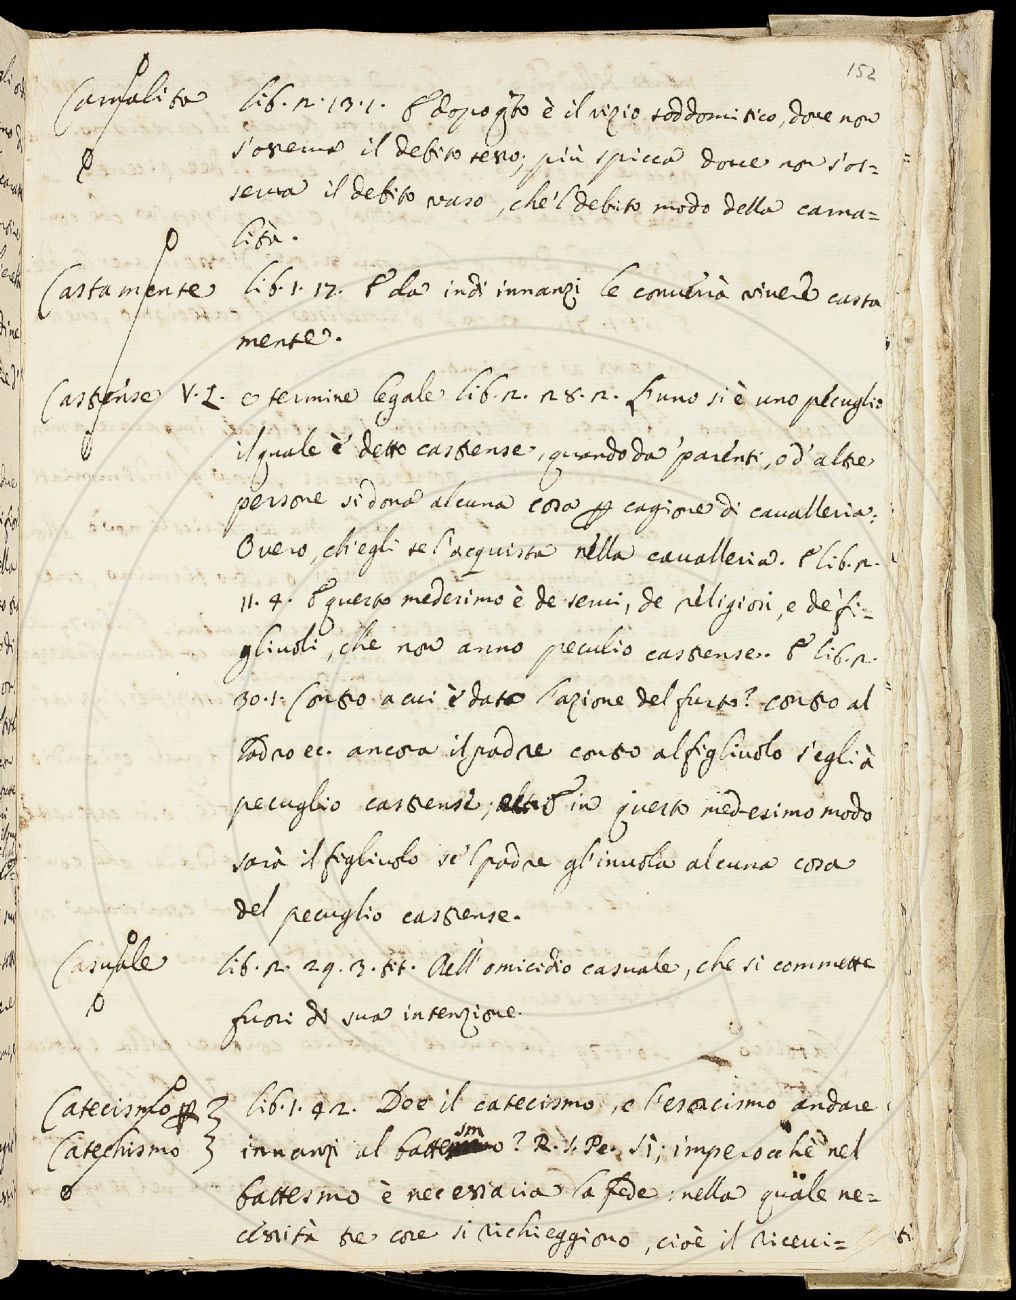 152
Carnalita lib. 2. 13. 1. E dopo q̃sto è il vizio soddomitico, dove non
s'osserva il debito sesso; più spicca dove non s'os=
serva il debito vaso, che'l debito modo della carna=
lità.
Castamente lib. 1. 17. E da indi innanzi le converrà vivere casta
mente.
Castrense V. L. e termine legale lib. 2. 28. 2. L'uno si è uno pecuglio
il quale è detto castrense, quando da' parenti, o d'altre
persone si dona alcuna cosa p cagione di cavalleria:
Overo, ch'egli se l'acquista nella cavalleria. E lib. 2.
11. 4. E questo medesimo è de servi, de religiosi, e de' fi=
gliuoli, che non anno peculio castrense. E lib. 2.
30. 1. Contro a cui è data l'azione del furto? contro al
ladro ec. ancora il padre contro al figliuolo s'egli à
pecuglio castrense; E in questo medesimo modo
sarà il figliuolo se'l padre gl'invola alcuna cosa
del pecuglio castrense.
Casuale lib. 2. 29. 3. tit. Dell'omicidio casuale, che si commette
fuori di sua intenzione.
Catecismo p lib. 1. 42. Dee il catecismo, e l'esorcismo andare
Catechismo innanzi al battesmo? R. S. Pe. Sì; imperocchè nel
battesmo è necessaria la fede: nella quale ne=
cessità tre cose si richieggiono, cioè il ricevi=